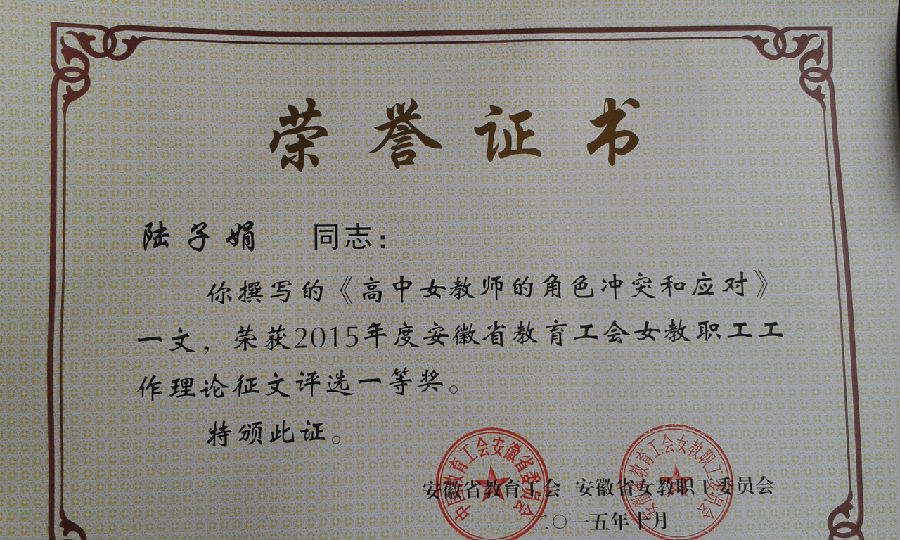 荣誉证书
陆子娟 同志：
你撰写的《高中女教师的角色冲突和应对》
一文，荣获2015年度安徽省教育工会女教职工工
作理论征文评选一等奖。
特颁此证。
安徽省教育工会 安徽省女教职工委员会
二〇一五年十月
中国教育工会安徽省委员会